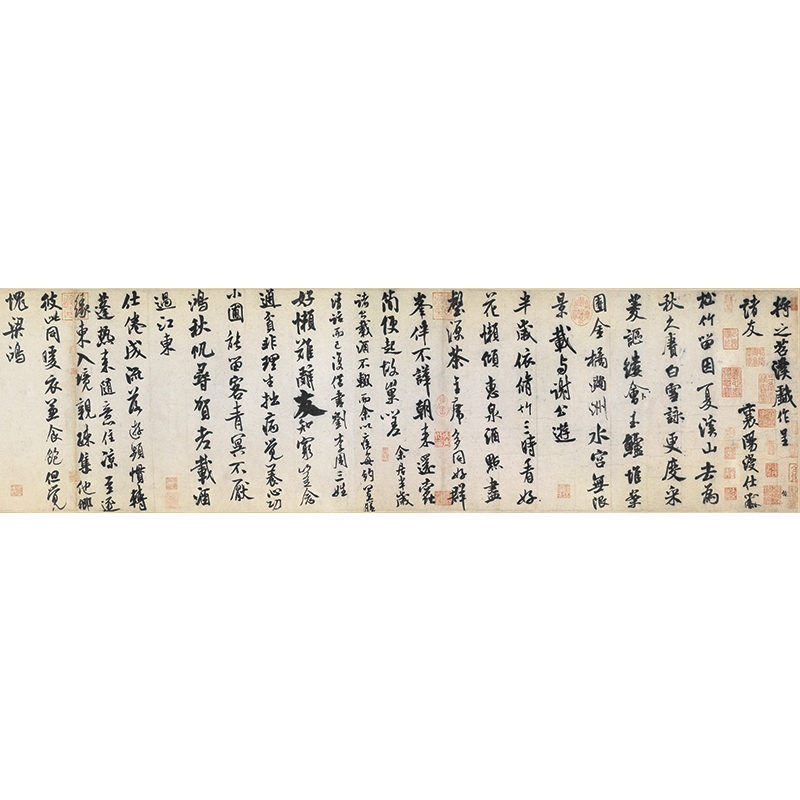 將之苕溪戲作呈
諸友 襄陽漫仕黻
松竹留因夏溪山去為
秋久賡白雪詠更度采
菱謳縷會玉鱸堆案
團金橘滿洲水宮無限
景載与謝公遊
半歲依脩竹三時看好
花懶傾惠泉酒點盡
壑源茶主席多同好群
峯伴不譁朝來還蠹
簡便起故巢嗟 余居半歲
諸公載酒不輟而余以疾每約置膳
清話而已復借書劉李周三姓
好懶難辭友知窮豈念
通貧非理生拙病覺養心功
小圃能留客青冥不厭
鴻秋帆尋賀老載酒
過江東
仕倦成流落遊頻慣轉
蓬熱來隨意住涼至逐
緣東入境親疎集他鄉
彼此同暖衣兼食飽但覺
愧梁鴻